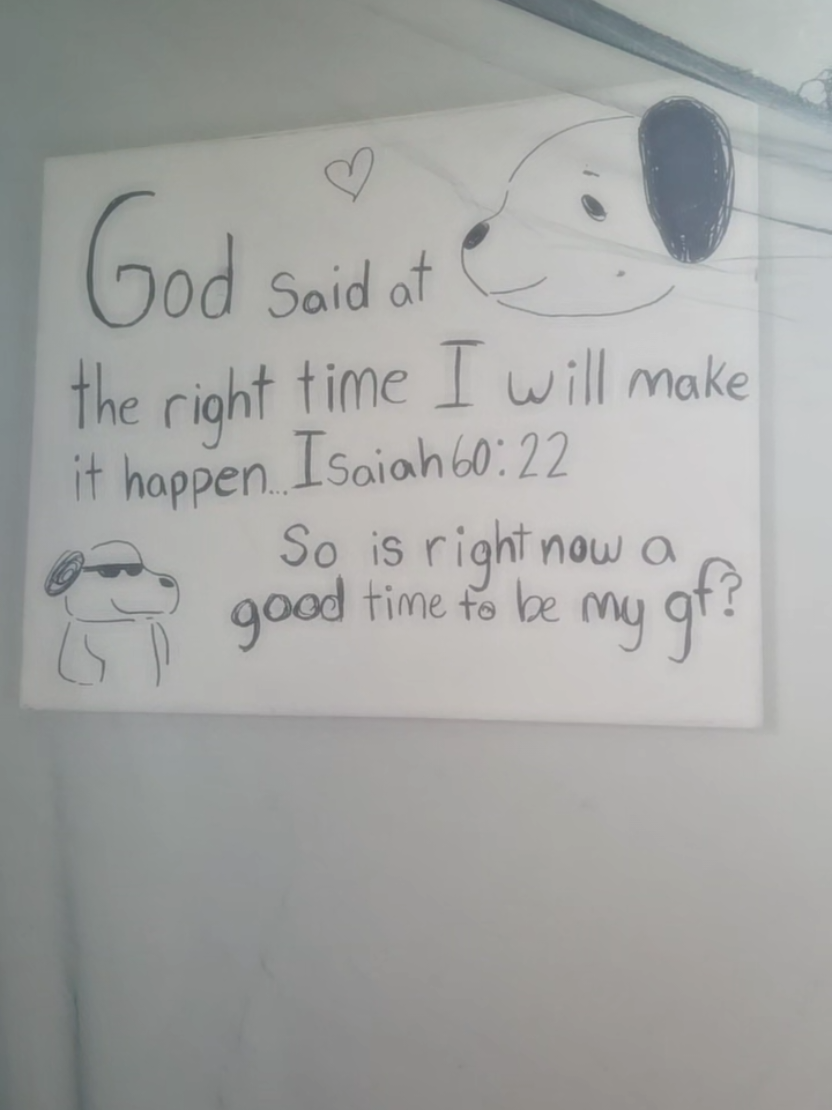 God said at
the right time I will make
it happen... Isaiah 60:22
So is right now a
good time to be my gf?